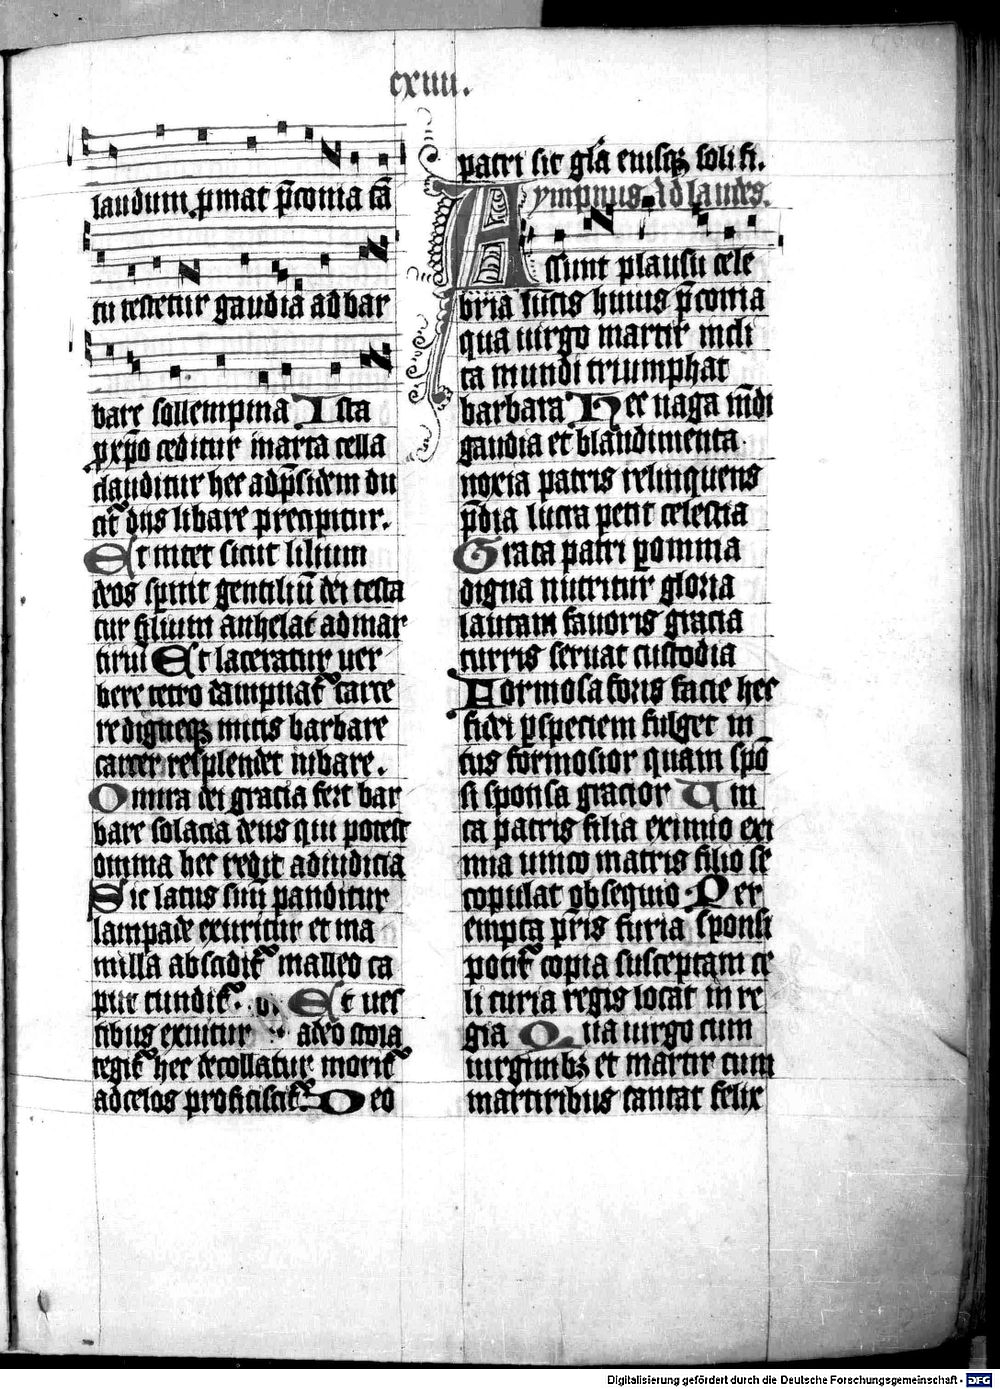 cxiiii.
laudum ꝓmat p̄conia tā
tu testetur gaudia ad bar
bare sollempnia Ista
ꝓ xp̄o ceditur in arta cella
clauditur hec ad p̄sidem du
cit᷑ diis libare precipitur.
Et nitet sicut lilium
deos spuit gentiliū dei testa
tur filium anhelat ad mar
tiriū Et laceratur ver
bere tetro dampnat᷑ carce
re digneqꝫ mitis barbare
carcer resplendet iubare.
O mira dei gracia fert bar
bare solacia deus qui potest
omnia hec redit ad iudicia
Sic latus sinū panditur
lampade exuritur et ma
milla abscidit᷑ malleo ca
put tundit᷑. Et ves
tibus exuitur adeo stola
tegit᷑ hec decollatur morit᷑
ad celos proficiscit᷑ Deo
patri sit gl̄a eiusqꝫ soli fi.
Ympnus Ad laudes.
Assunt plausu cele
bria lucis huius p̄conia
qua uirgo martir incli
ta mundi triumphat
barbara Hec uaga mūdi
gaudia et blandimenta
noxia patris relinquens
p̄dia lucra petit celestia
Grata patri ꝑ omnia
digna nutritur gloria
lautam fauoris gracia
turris seruat custodia
Formosa foris facie hec
fidei ꝑ speciem fulget in
tus formosior quam spō
si sponsa gracior Uni
ca patris filia eximio exi
mia unico matris filio se
copulat obsequio Per
empta pr̄is furia sponsi
potit᷑ copia susceptam ce
li curia regis locat in re
gia Qua uirgo cum
uirginibꝫ et martir cum
martiribus cantat felix
Digitalisierung gefördert durch die Deutsche Forschungsgemeinschaft - DFG